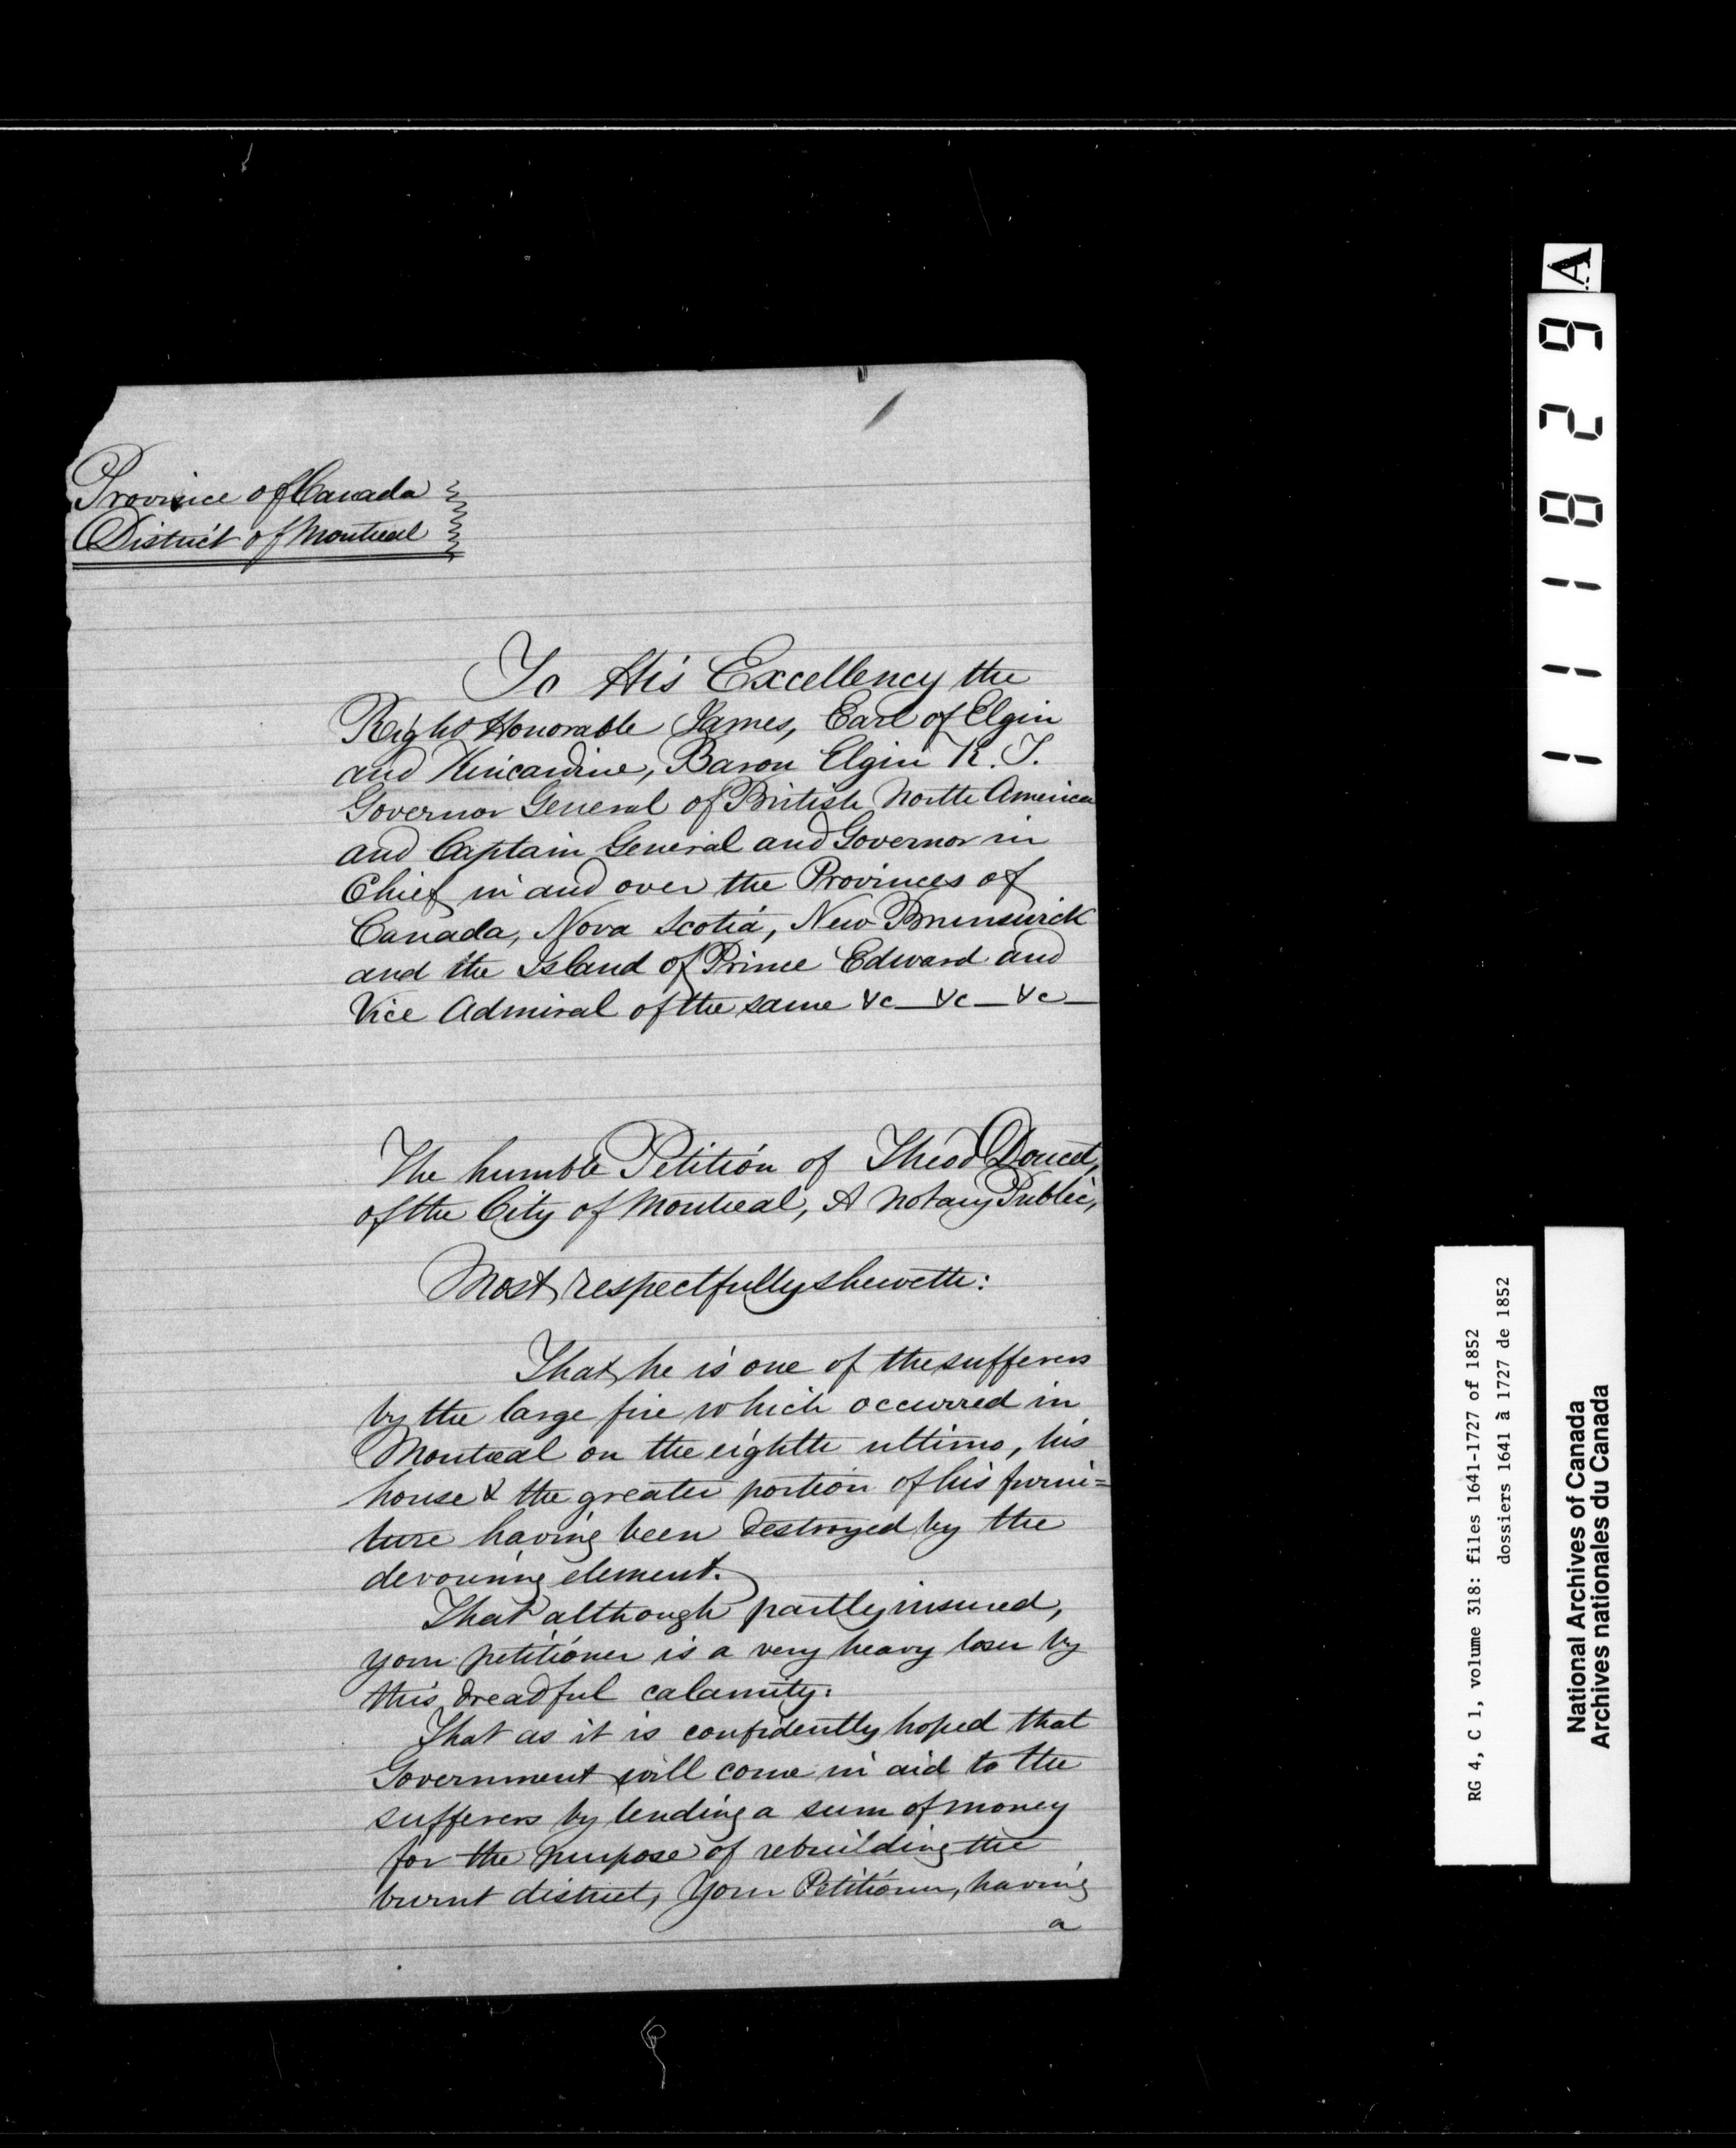 Province of Canada
District of Montreal
To His Excellency the
Right Honorable James, Earl of Elgin
and Kincardine, Baron Elgin K. T.
Governor General of British North America
and Captain General and Governor in
Chief in and over the Provinces of
Canada, Nova Scotia, New Brunswick
and the Island of Prince Edward and
Vice Admiral of the same &c — &c — &c —
The humble Petition of Theod Doucet,
of the City of Montreal, A Notary Public,
Most respectfully sheweth:
That he is one of the sufferers
by the large fire which occurred in
Montreal on the eighth ultimo, his
house & the greater portion of his furni=
ture having been destroyed by the
devouring element.
That although partly insured,
your petitioner is a very heavy loser by
this dreadful calamity.
That as it is confidently hoped that
Government will come in aid to the
sufferers by lending a sum of money
for the purpose of rebuilding the
burnt district, Your Petitioner, having
a
111829 A
RG 4, C 1, volume 318: files 1641-1727 of 1852
dossiers 1641 à 1727 de 1852
National Archives of Canada
Archives nationales du Canada